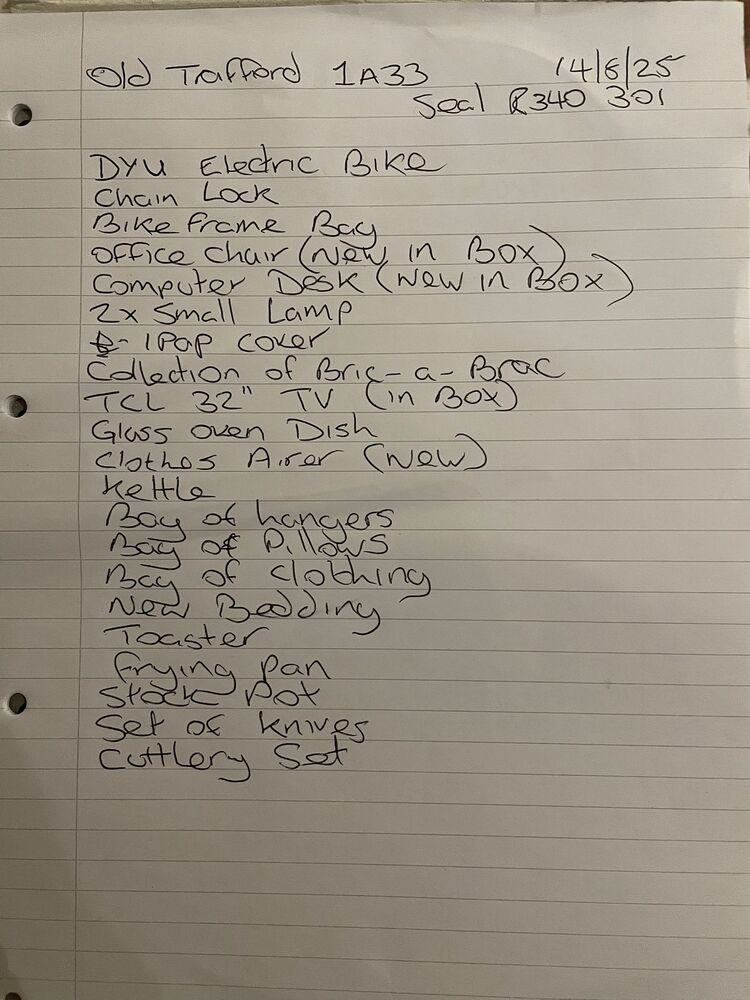 Old Trafford 1A33 14/6/25
Seal R340 301
DYU Electric Bike
Chain Lock
Bike frame Bag
office chair (New in Box)
Computer Desk (New in Box)
2x Small Lamp
IPap cover
Collection of Bric-a-Brac
TCL 32" TV (in Box)
Glass oven Dish
Clothes Airer (New)
Kettle
Bag of hangers
Bag of Pillows
Bag of clothing
New Bedding
Toaster
frying pan
Stock Pot
Set of knives
Cuttlery Set